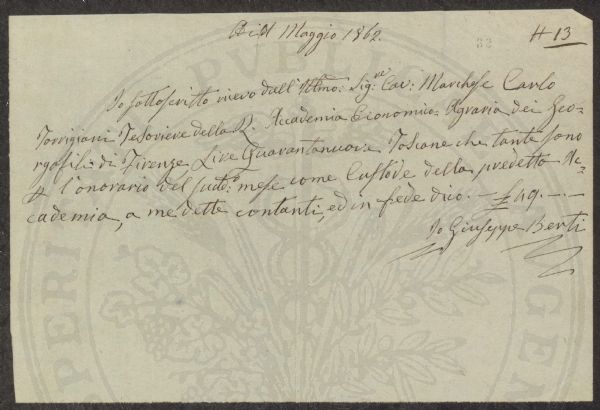 Maggio 1862. # 13
Io sottoscritto ricevo dall'Illmo: Sig:re Cav: Marchese Carlo
Torrigiani Tesoriere della R. Accademia Economico-Agraria dei Geo-
rgofili di Firenze Lire Quarantanove Toscane che tante sono
p l'onorario del sudd:o mese come Custode della predetta Ac-
cademia, a me dette contanti, ed in fede dico. — £ 49. — . —
Io Giuseppe Berti
PUBL
PERI
GEN